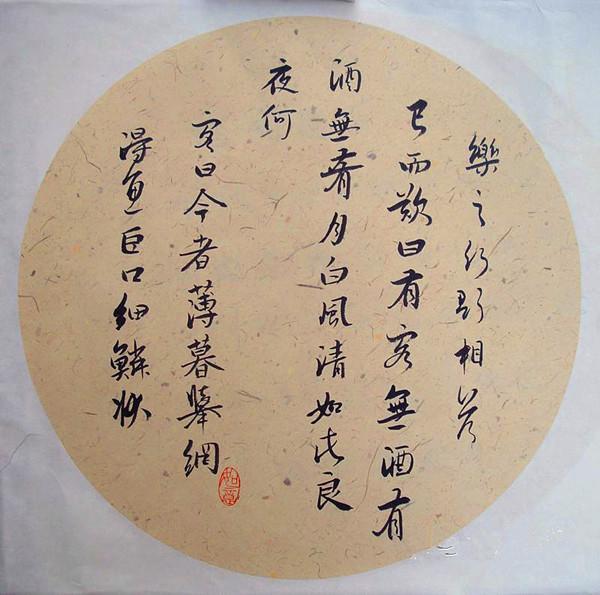 樂之行歌相答
已而歎曰有客無酒有
酒無肴月白風清如此良
夜何
客曰今者薄暮舉網
得魚巨口細鱗狀
如意